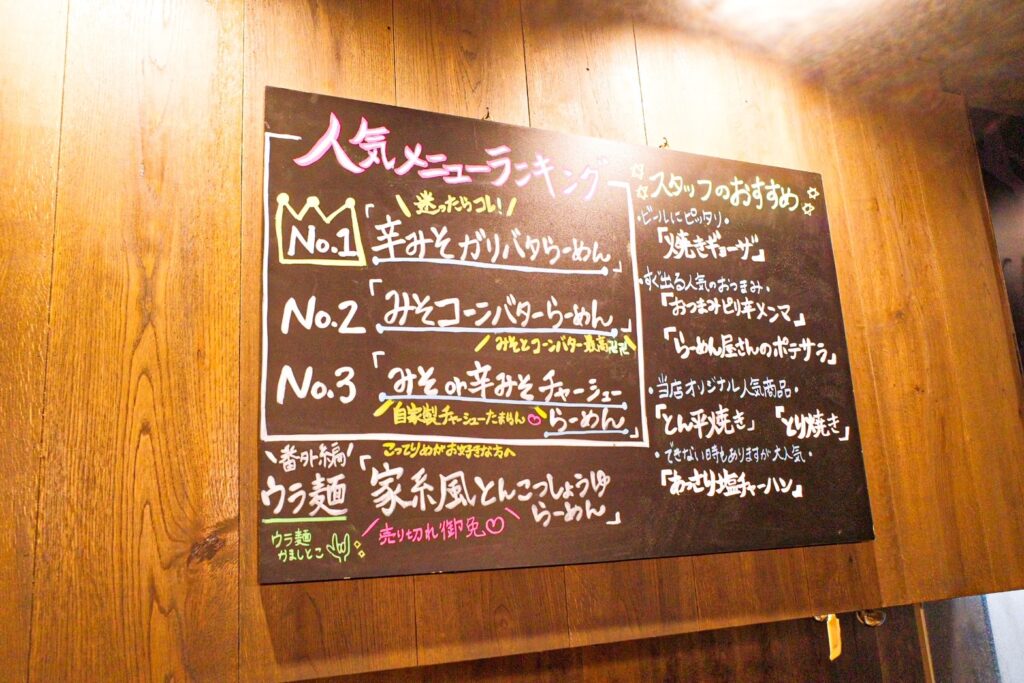 人気メニューランキング
迷ったらコレ!
No.1 「辛みそガリバタらーめん」
No.2 「みそコーンバターらーめん」
みそとコーンバター最高卍卍
No.3 「みそor辛みそチャーシュー
らーめん」
自家製チャーシューたまらん♡
番外編
ウラ麺
こってりめがお好きな方へ
「家系風とんこつしょうゆ
らーめん」
売り切れ御免♡
ウラ麺
かましとこ
☆スタッフのおすすめ☆
・ビールにピッタリ・
「焼きギョーザ」
・すぐ出る人気のおつまみ・
「おつまみピリ辛メンマ」
「らーめん屋さんのポテサラ」
・当店オリジナル人気商品・
「とん平焼き」 「とり焼き」
・できない日時もありますが大人気・
「あっさり塩チャーハン」